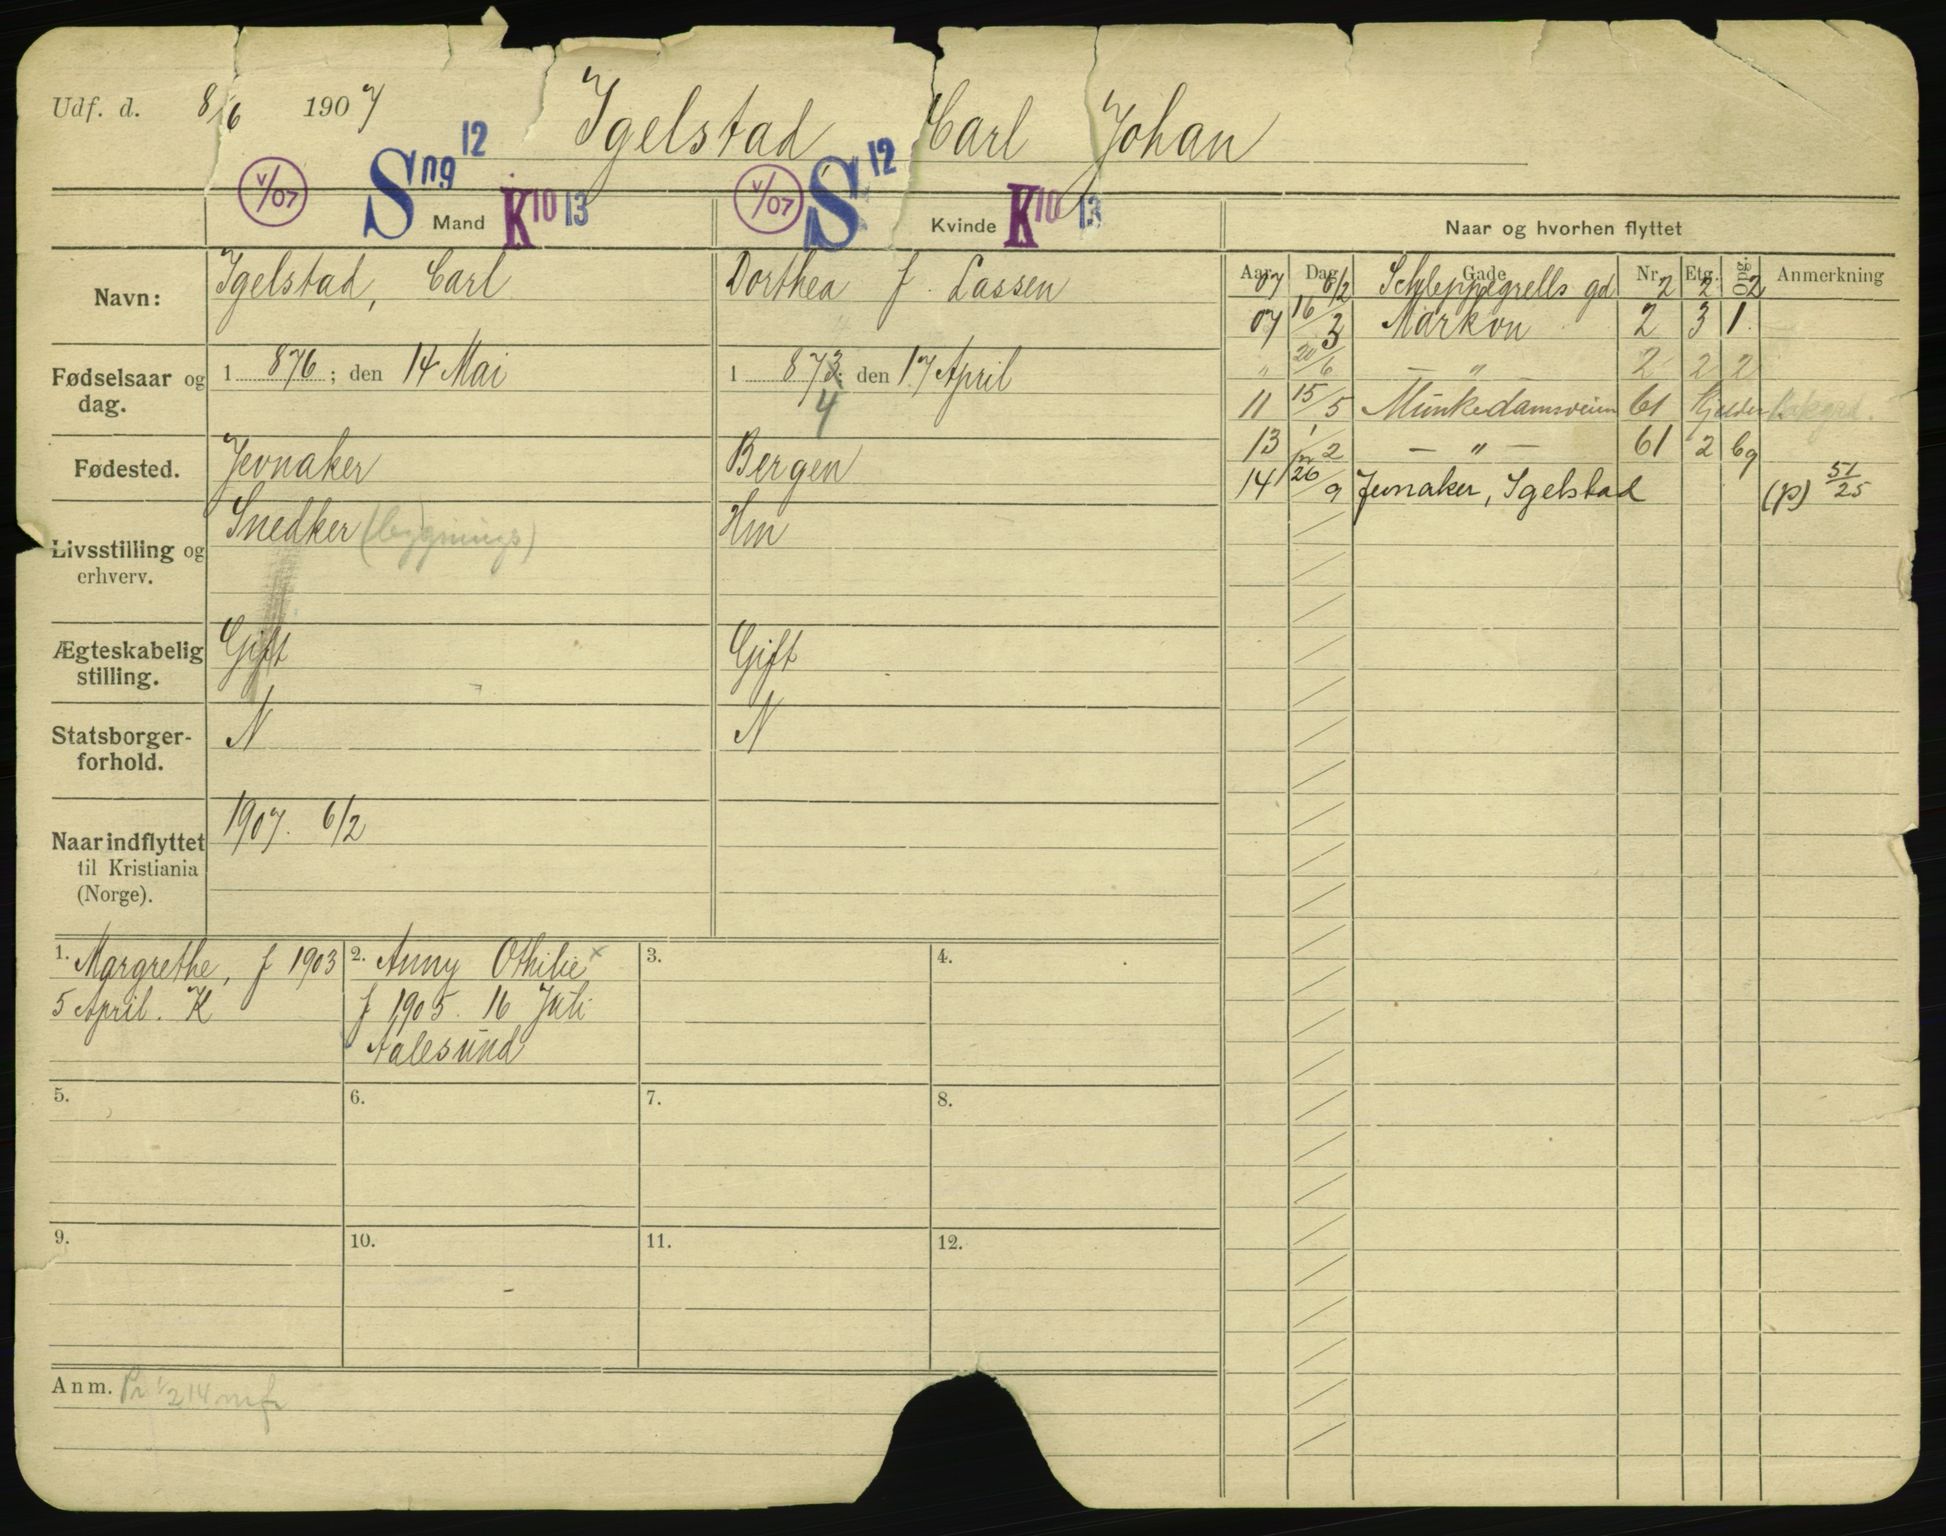 Udf. d. 8/6 1907 Igelstad Carl Johan
V/07 S ng 12 Mand K 10 13 V/07 S 12 Kvinde K 10 13 Naar og hvorhen flyttet
Navn: Igelstad, Carl Dorthea f. Lassen
Fødselsaar og dag. 1 876 ; den 14 Mai 1 873 4 ; den 17 April
Fødested. Jevnaker Bergen
Livsstilling og erhverv. Snedker (bygnings) Hm
Ægteskabelig stilling. Gift Gift
Statsborger-forhold. N N
Naar indflyttet til Kristiania (Norge). 1907. 6/2
Aar Dag Gade Nr. Etg. Opg. Anmerkning
07 6/2 Schleppegrells gd 2 2 2
07 16/3 Markvn 2 3 1
" 20/6 — " — 2 2 2
11 15/5 Munkedamsveien 61 Kjelder
13 1/2 — " — 61 2 bg
14 26/9 Jevnaker, Igelstad (p) 51/25
1. Margrethe, f 1903
5 April. K
2. Anny Othilie x
f 1905. 16 Juli
Aalesund
3.
4.
5.
6.
7.
8.
9.
10.
11.
12.
Anm. Pr 1/2 14 mfr